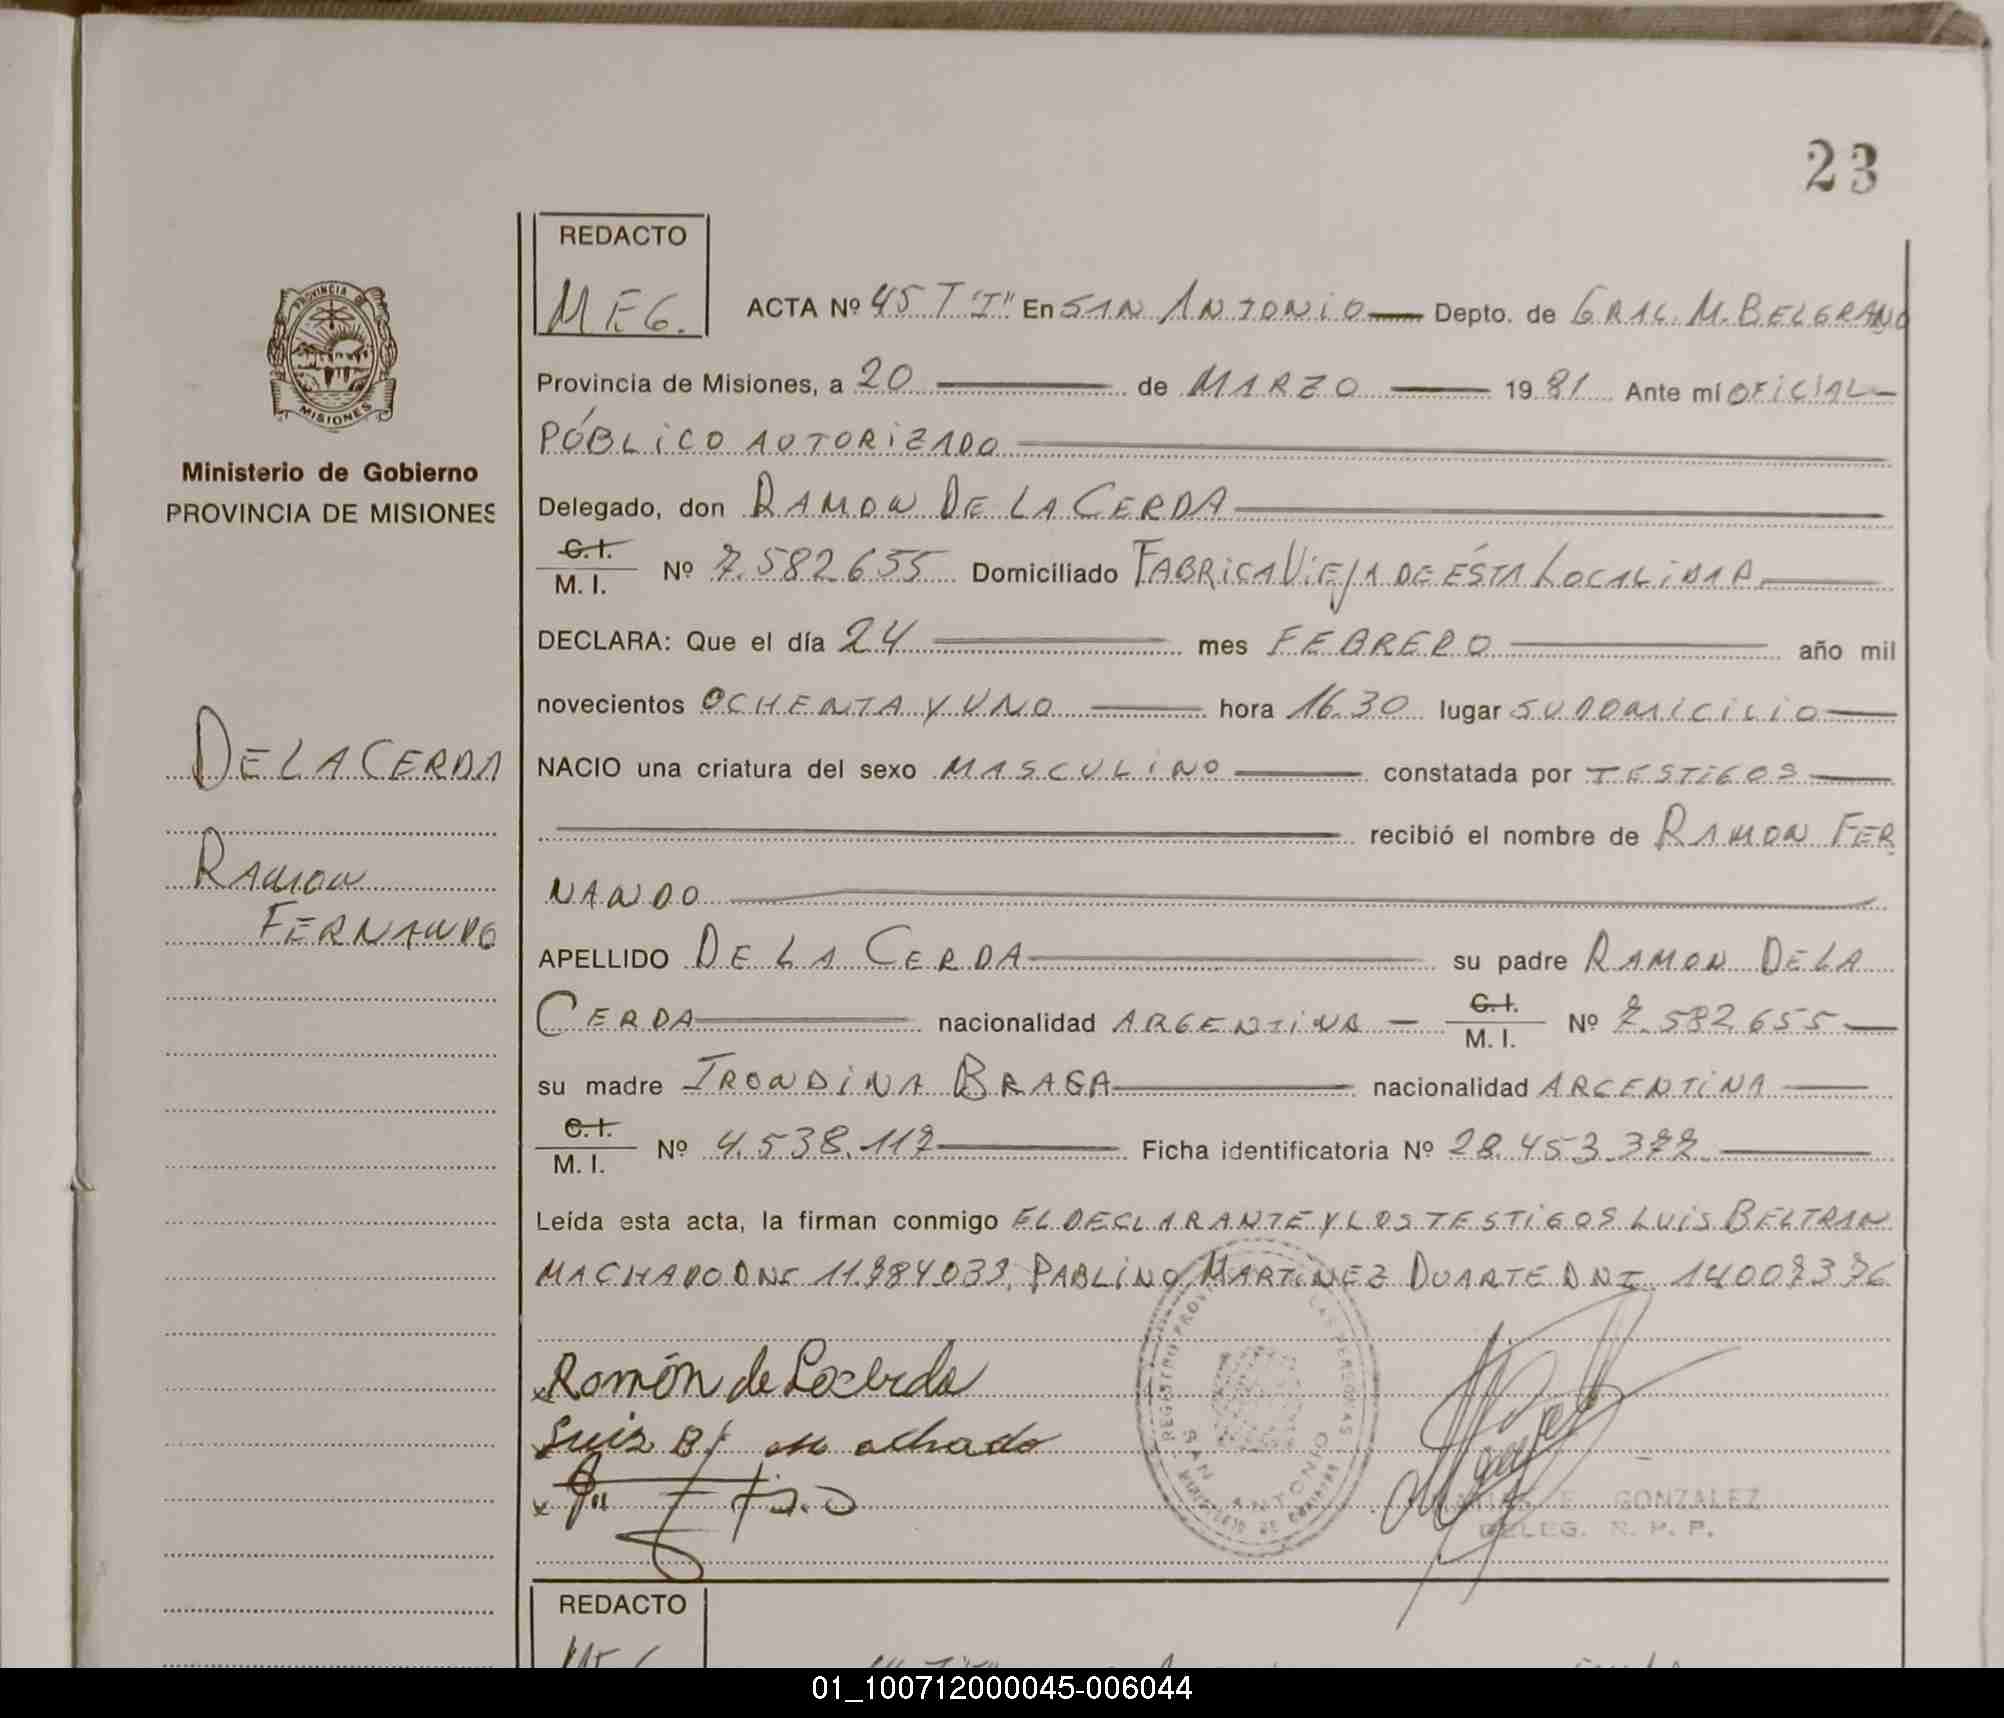 23
REDACTO
M.E.G.
ACTA Nº 45 T "I" En SAN ANTONIO Depto. de GRAL. M. BELGRANO
Provincia de Misiones, a 20 de MARZO 1981 Ante mí OFICIAL
PÚBLICO AUTORIZADO
Delegado, don RAMON DE LA CERDA
C. I.
M. I. Nº 7.582.655 Domiciliado FABRICA VIEJA DE ÉSTA LOCALIDAD
DECLARA: Que el día 24 mes FEBRERO año mil
novecientos OCHENTA Y UNO hora 16.30 lugar SU DOMICILIO
NACIO una criatura del sexo MASCULINO constatada por TESTIGOS
recibió el nombre de RAMON FER
NANDO
APELLIDO DE LA CERDA su padre RAMON DE LA
CERDA nacionalidad ARGENTINA C. I. M. I. Nº 7.582.655
su madre IRONDINA BRAGA nacionalidad ARGENTINA
C. I.
M. I. Nº 4.538.117 Ficha identificatoria Nº 28.453.377
Leída esta acta, la firman conmigo EL DECLARANTE Y LOS TESTIGOS LUIS BELTRAN
MACHADO DNI PABLINO MARTINEZ DUARTE DNI 14007376
Ramón de Lacerda
Luis B. machado
REGISTRO PROV LAS PERSONAS
SAN ANTONIO
MINISTERIO DE GOBIERNO
GONZALEZ
DELEG. R. P. P.
PROVINCIA DE
MISIONES
Ministerio de Gobierno
PROVINCIA DE MISIONES
DE LA CERDA
RAMON
FERNANDO
REDACTO
01_100712000045-006044